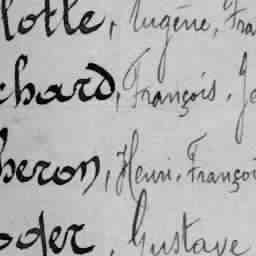 lotte, Eugène, Fra
chard, François, Je
heron, Henri, Françoi
oger, Gustave